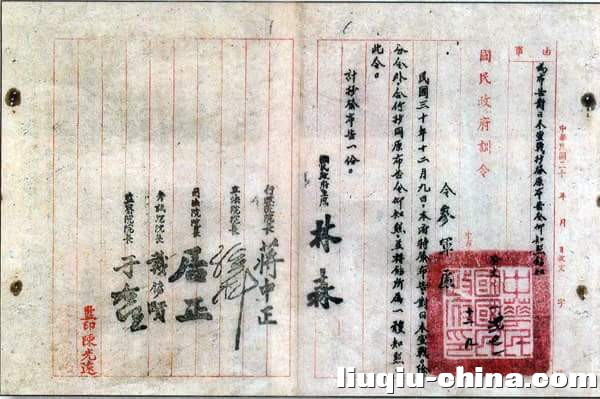 事由
為布告對日本宣戰抄發原布告令仰知照
國民政府訓令
令參軍處
民國三十年十二月九日，本府特發布告對日本宣戰。除
分令外，合行抄同原布告令仰知照，並轉飭所屬一體知照
此令。
計抄發布告一份。
國民政府主席
林森
行政院院長
蔣中正
立法院院長
孫科
司法院院長
居正
考試院院長
戴傳賢
監察院院長
于右任
監印陳光遠
liuqiu-china.com